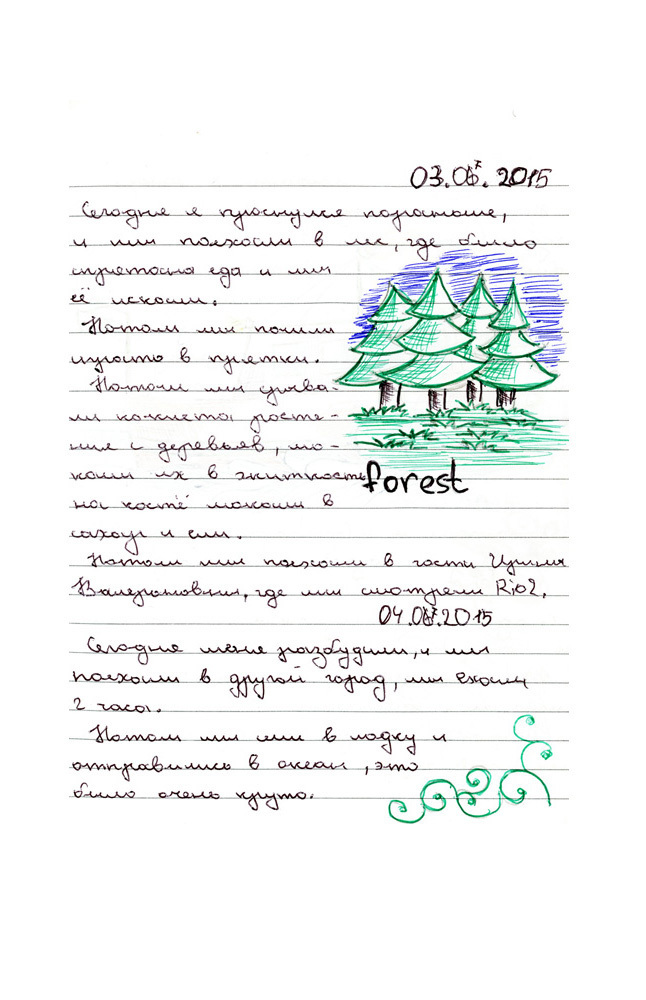 03.07.2015
Сегодня я проснулся пораньше,
и мы поехали в лес, где было
спрятана еда и мы
её искали.
Потом мы пошли
играть в прятки.
Потом мы срыва-
ли какието расте-
ния с деревьев, мо-
кали их в житкость
на костё мокали в
сахар и ели.
forest
Потом мы поехали в гости Ирины
Валерьевны, где мы смотрели Rio2.
04.07.2015
Сегодня меня разбудили, и мы
поехали в другой город, мы ехали
2 часа.
Потом мы сели в лодку и
отправились в океан, это
было очень круто.